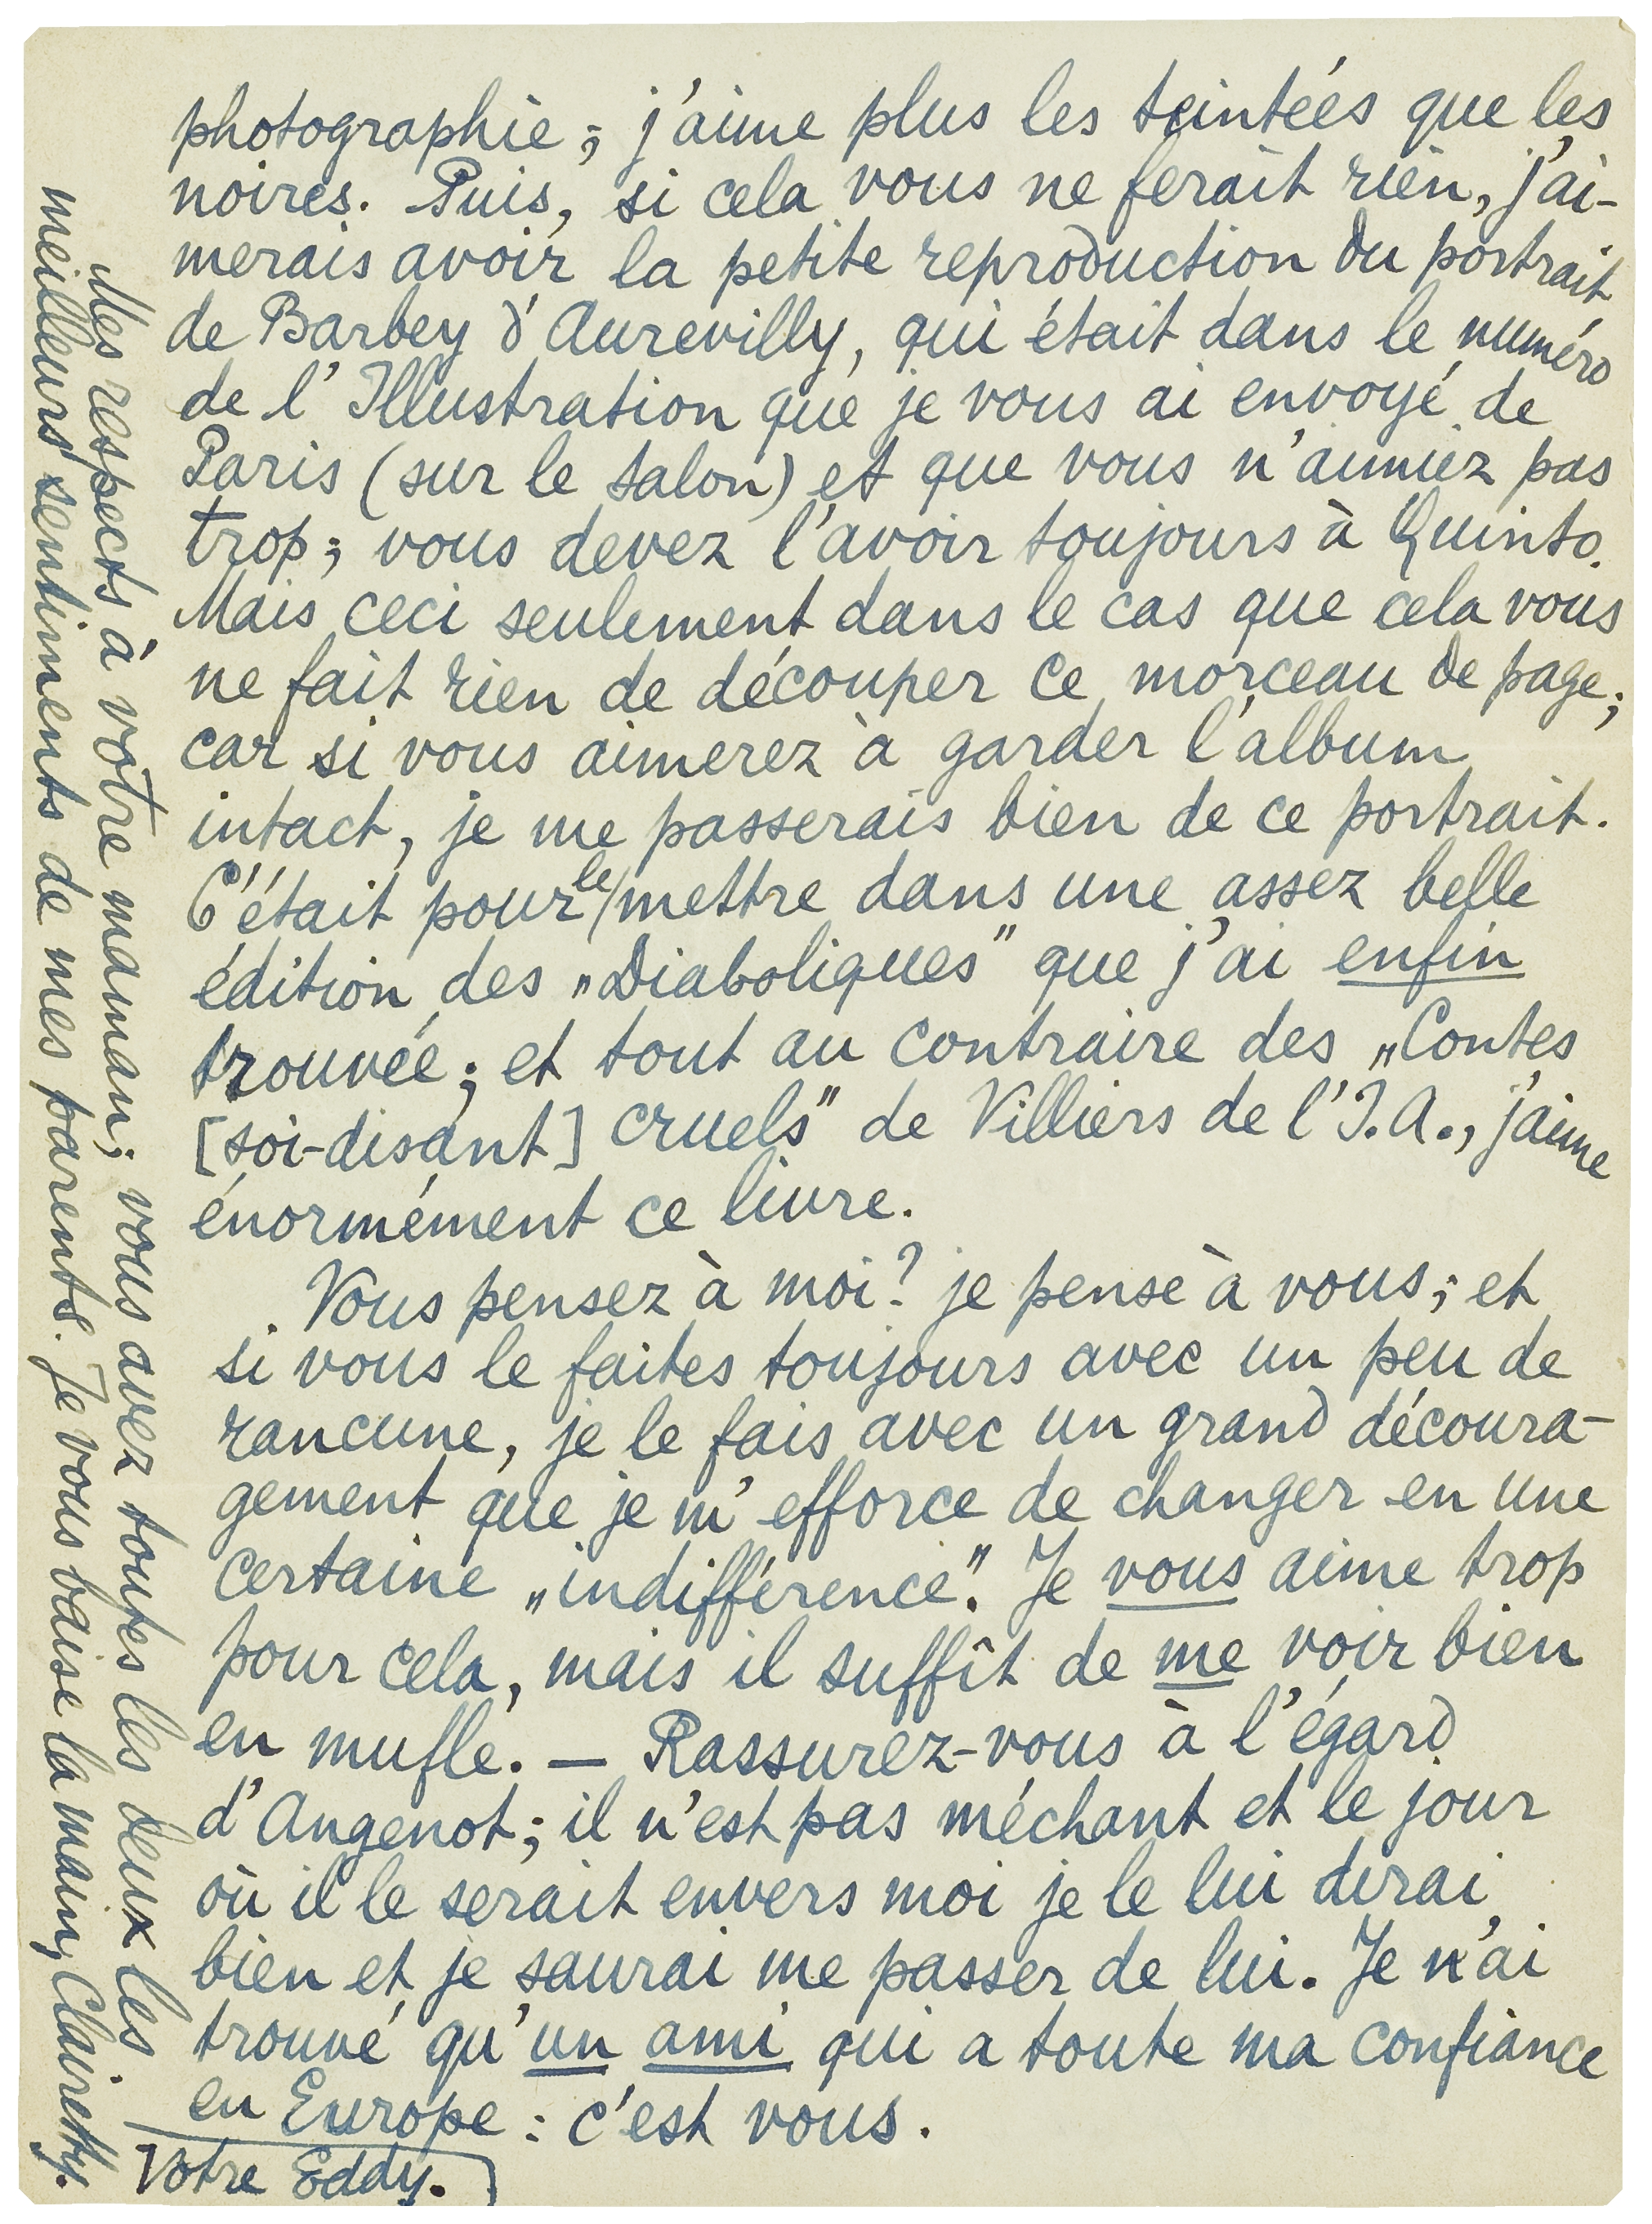 photographie; j'aime plus les teintées que les
noires. Puis, si cela vous ne ferait rien, j'ai-
merais avoir la petite reproduction du portrait
de Barbey d'Aurevilly, qui était dans le numéro
de l'Illustration que je vous ai envoyé de
Paris (sur le salon) et que vous n'aimiez pas
trop; vous devez l'avoir toujours à Quinto.
Mais ceci seulement dans le cas que cela vous
ne fait rien de découper ce morceau de page;
car si vous aimerez à garder l'album
intact, je me passerais bien de ce portrait.
C'était pour le mettre dans une assez belle
édition des „Diaboliques" que j'ai enfin
trouvée; et tout au contraire des „Contes
[soi-disant] cruels" de Villiers de l'I.A., j'aime
énormément ce livre.
Vous pensez à moi? je pense à vous; et
si vous le faites toujours avec un peu de
rancune, je le fais avec un grand découra-
gement que je m'efforce de changer en une
certaine „indifférence". Je vous aime trop
pour cela, mais il suffît de me voir bien
en mufle. — Rassurez-vous à l'égard
d'Angenot; il n'est pas méchant et le jour
où il le serait envers moi je le lui dirai
bien et je saurai me passer de lui. Je n'ai
trouvé qu'un ami qui a toute ma confiance
en Europe: c'est vous.
Votre Eddy.
Mes respects à votre maman; vous avez toutes les deux les
meilleurs sentiments de mes parents. Je vous baise la main, Clairetty.